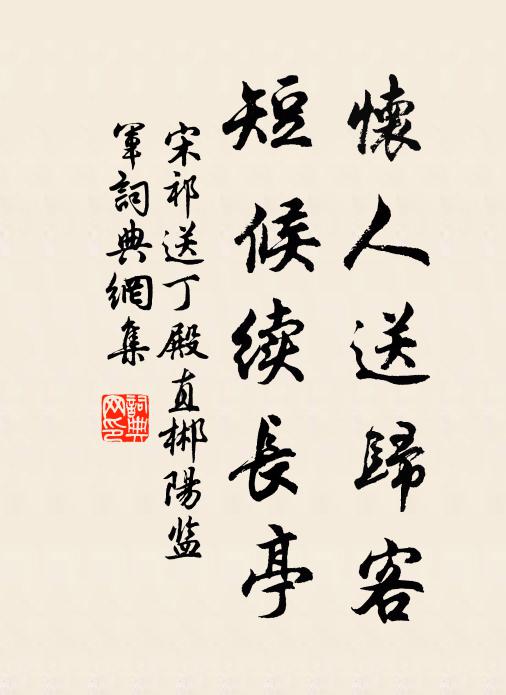 懷人送歸客
短候续長亭
宋祁送丁殿直郴陽监
軍詞典網集
詞典网印